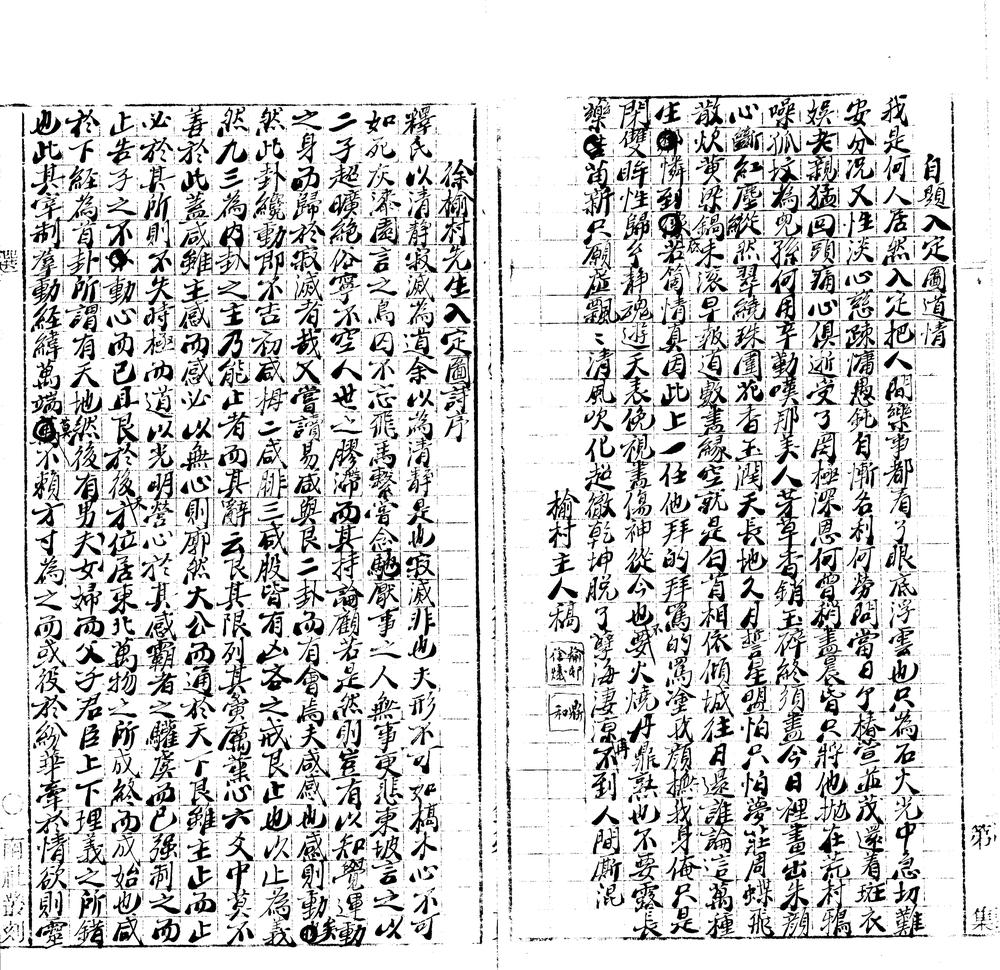 自題入定圖道情
我是何人居然入定把人間樂事都看了眼底浮雲也只為石火光中急切難
安分況又性淡心慈疎慵愚鈍自慚名利何勞問當日个椿萱並茂還着斑衣
娛老親猛回頭痛心俱逝受了罔極深恩何曾稍盡晨昏只將他拋在荒村鴉
噪狐墳為兒孫何用辛勤嘆那美人芳草香銷玉碎終須盡今日裡畫出朱顏
心斷紅塵縱然翠繞珠圍花香玉潤天長地久月誓星盟怕只怕夢莊周蝶飛
散炊黃梁鍋未滾早報道數盡緣空就是勾消相依傾城往日還誰論言萬種
生憐到若箇情真因此上一任他拜的拜罵的罵塗我顏撫我身俺只是
閉雙眸性歸乎靜魂遊天表俛視盡傷神從今也不要火燒丹鼎熟也不要露長
藥苗新只願虛飄〻清風吹化超徹乾坤脫了孽海淒涼再不到人間廝混
榆村主人稿
徐榆村先生入定圖詩序
釋氏以清靜寂滅為道余以為清靜是也寂滅非也夫形不可如槁木心不可
如死灰漆園言之鳥囚不忘飛馬繫常念馳厭事之人無事更悲東坡言之以
二子超曠絕俗寧不空人世之膠滯而其持論顧若是然則豈有以知覺運動
之身而歸於寂滅者哉又嘗讀易咸與艮二卦而有會焉夫咸感也感則動矣
然此卦纔動即不吉初咸拇二咸腓三咸股皆有凶吝之戒艮止也以止為義
然九三為內卦之主乃能止者而其辭云艮其限列其夤厲薰心六爻中莫不
善於此蓋咸雖主感而感必以無心則廓然大公而通於天下艮雖主止而止
必於其所則不失時極而道以光明營心於其感霸者之驩虞而已强制之而
止告子之不動心而已且艮於後天位居東北萬物之所成終而成始也咸
於下經為首卦所謂有天地然後有男女夫婦而父子君臣上下理義之所錯
也此其宰制羣動經緯萬端莫不賴方寸為之而或役於紛華牽於情欲則靈
選
雨
叢刻
第
集